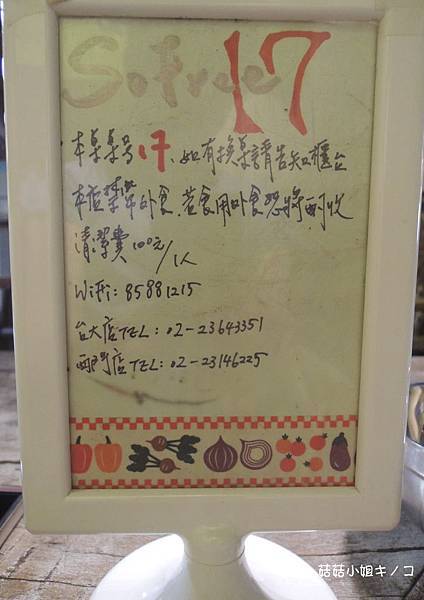 SoFree
17
本桌桌号17、如有換桌請告知櫃台
本店禁帶外食,若食用外食恐將酌收
清潔費100元/1人
WiFi:85881215
台大店TEL:02-23643351
西門店TEL:02-23146225
菇菇小姐キノコ